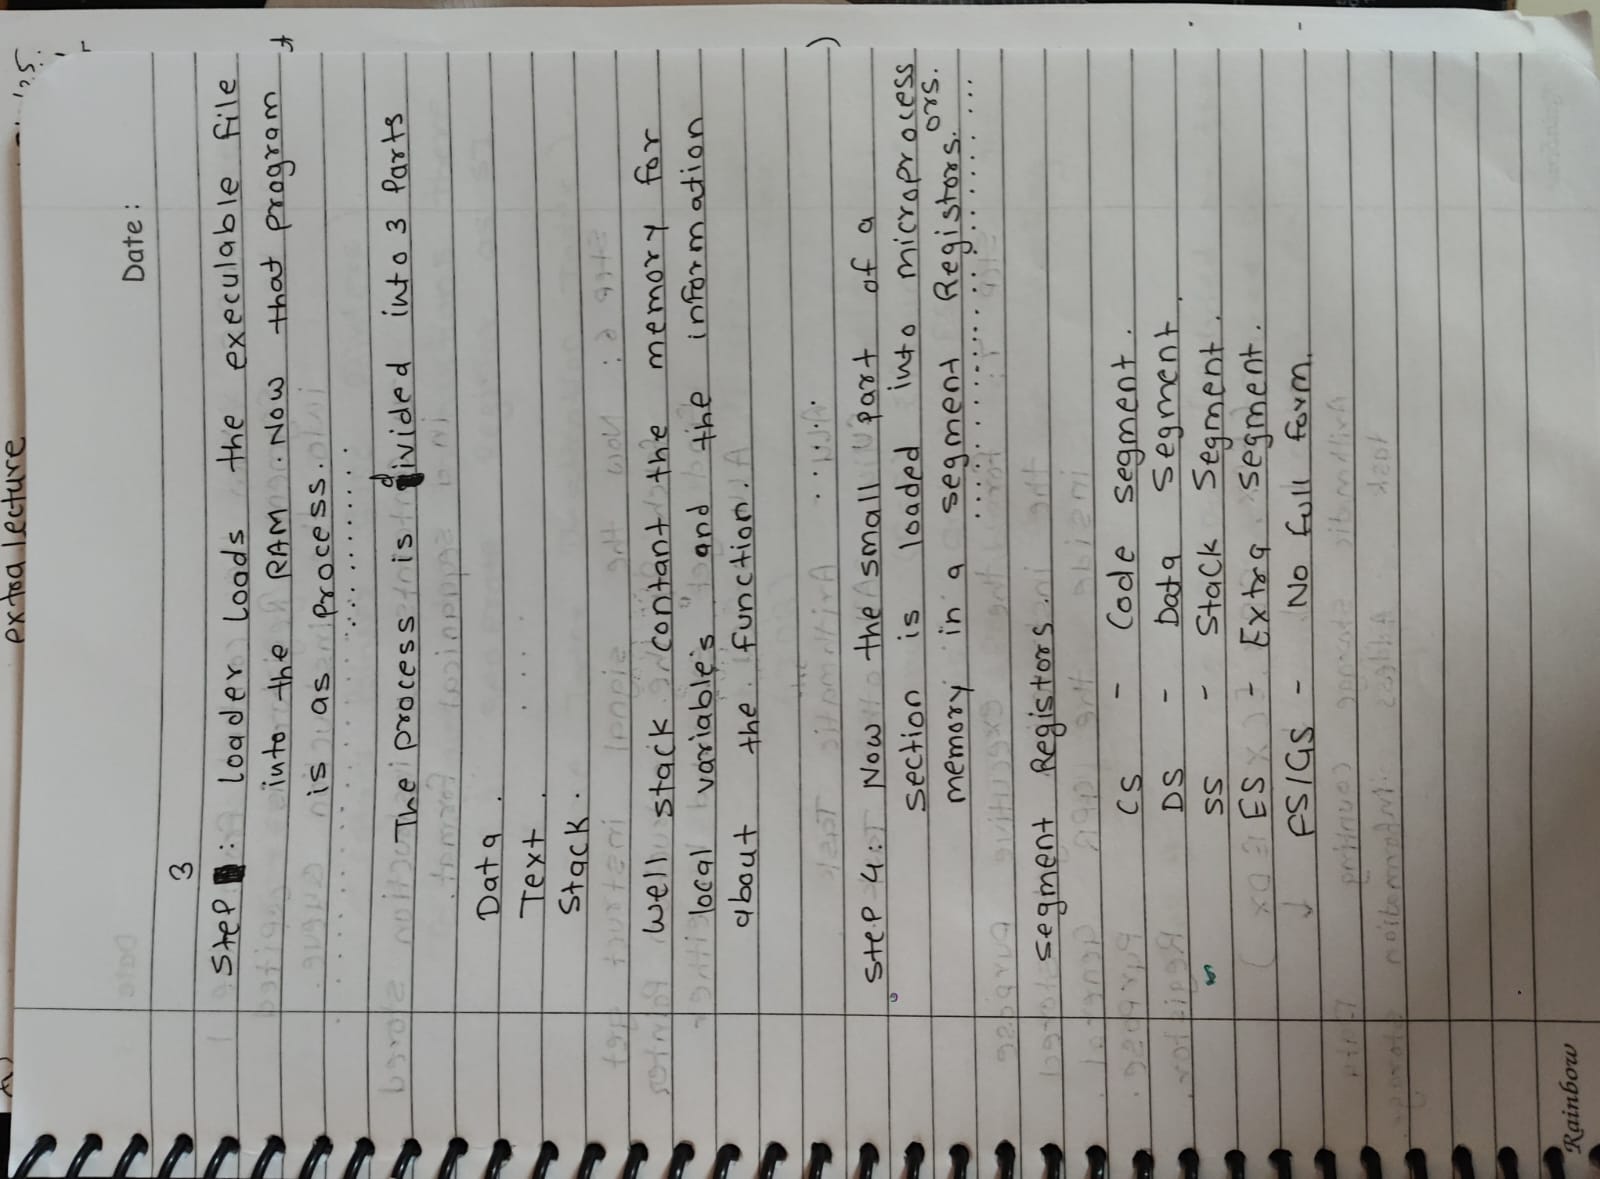 extra lecture
Date:
3
Step : loader loads the execulable file
into the RAM. Now that program
is as process.
The process is divided into 3 Parts
Data.
Text.
Stack.
well stack contant the memory for
local variable's and the information
about the function.
Step 4: Now the small part of a
section is loaded into microprocess
ors.
memory in a segment Registors.
segment Registors.
CS - Code segment.
DS - Data Segment.
SS - Stack Segment.
ES - Extra segment.
FS/GS - No full form.
Rainbow